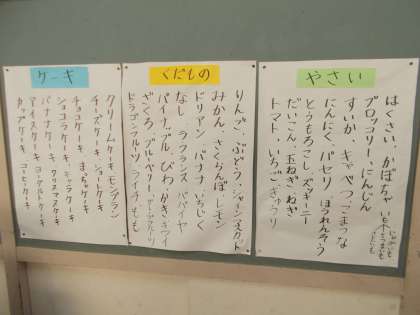 やさい
はくさい、かぼちゃ
ブロッコリー、にんじん
すいか、キャベツ、こまつな
にんにく、パセリ ほうれんそう
とうもろこし、ズッキーニ
だいこん、玉ねぎ ねぎ
トマト、いちご きゅうり
くだもの
りんご、ぶどう、シャインマスカット
みかん、さくらんぼ レモン
ドリアン、バナナ いちじく
なし、ラフランス パパイヤ
パイナップル、びわ、かき キウイ
ざくろ、ブルーベリー
ドラゴンフルーツ、ライチ、もも
ケーキ
クリームケーキ モンブラン
チーズケーキ、ショートケーキ
チョコケーキ、まっちゃケーキ
ショコラケーキ、キャラケーキ
バナナケーキ クリスマスケーキ
アイスケーキ ヨーグルトケーキ
カップケーキ コーヒーケーキ